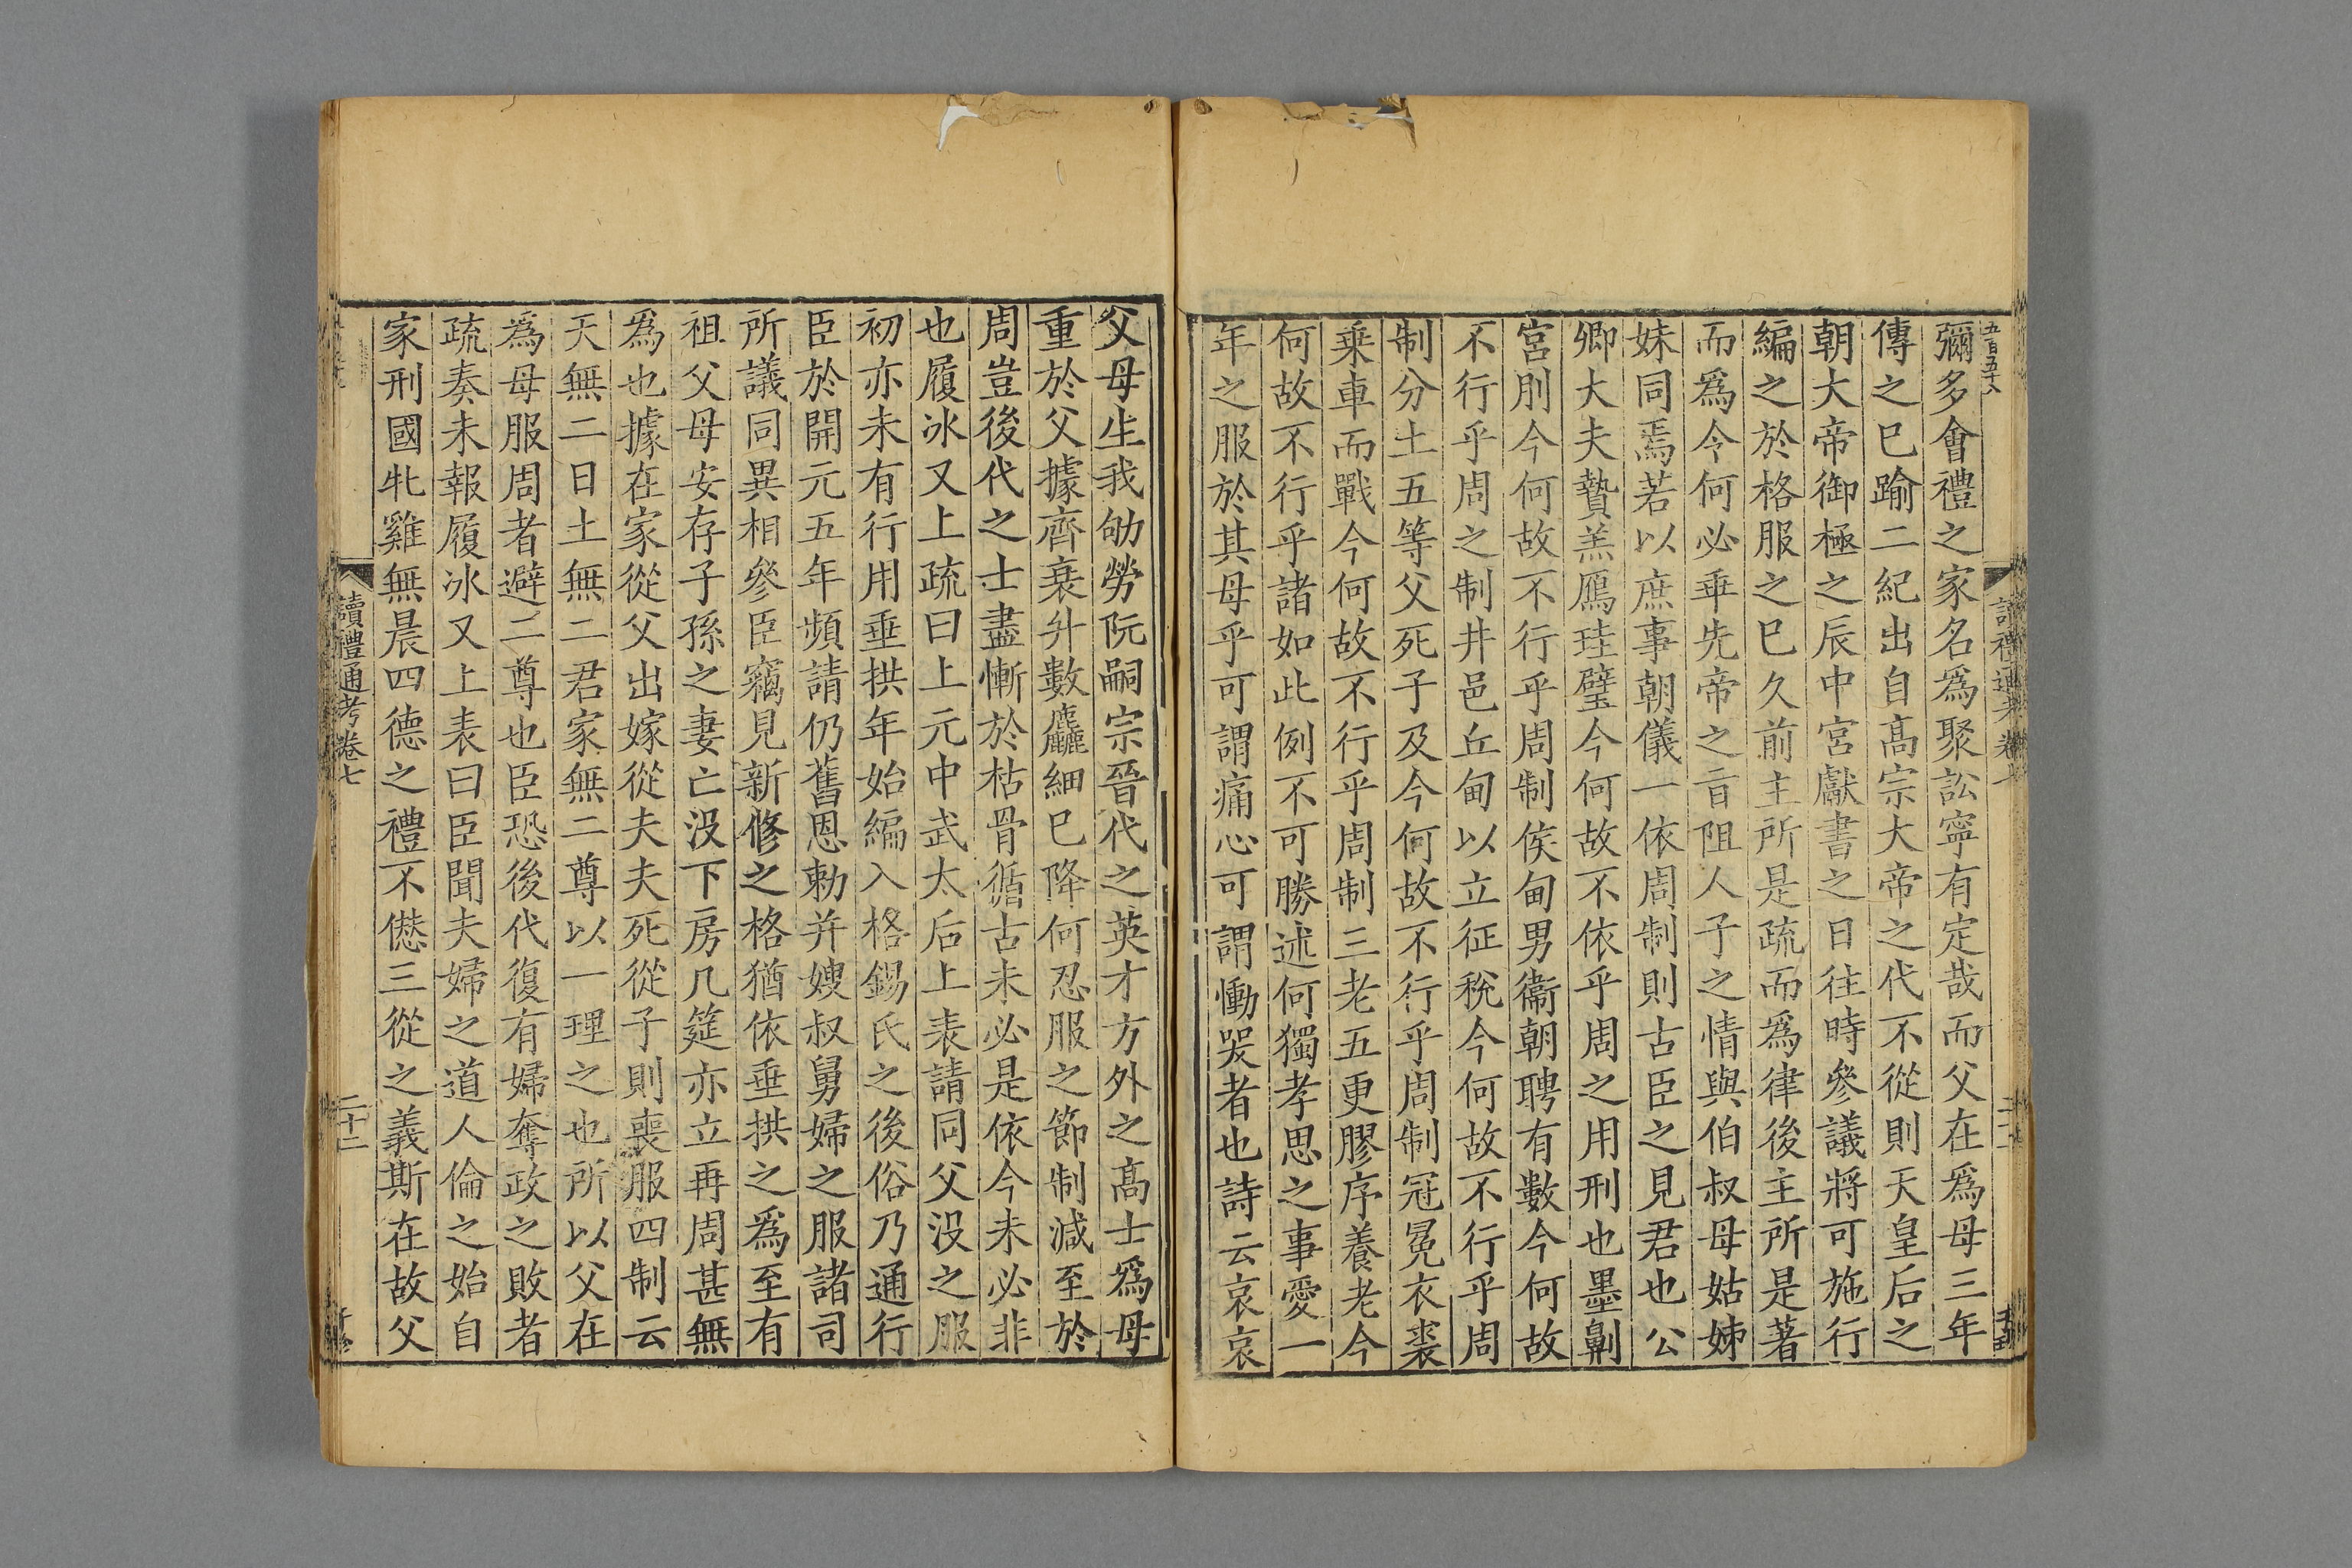 五百五十八
彌多會禮之家名爲聚訟寧有定哉而父在爲母三年
傳之已踰二紀出自高宗大帝之代不從則天皇后之
朝大帝御極之辰中宮獻書之日往時參議將可施行
編之於格服之已久前主所是疏而爲律後主所是著
而爲令何必乖先帝之旨阻人子之情與伯叔母姑姊
妹同焉若以庶事朝儀一依周制則古臣之見君也公
卿大夫贄羔鴈珪璧今何故不依乎周之用刑也墨劓
宮刖今何故不行乎周制侯甸男衞朝聘有數今何故
不行乎周之制井邑丘甸以立征稅今何故不行乎周
制分土五等父死子及今何故不行乎周制冠冕衣裘
乘車而戰今何故不行乎周制三老五更膠序養老今
何故不行乎諸如此例不可勝述何獨孝思之事愛一
年之服於其母乎可謂痛心可謂慟哭者也詩云哀哀
父母生我劬勞阮嗣宗晉代之英才方外之高士爲母
重於父據齊衰升數麤細已降何忍服之節制減至於
周豈後代之士盡慚於枯骨循古未必是依今未必非
也履冰又上疏曰上元中武太后上表請同父没之服
初亦未有行用垂拱年始編入格錫氏之後俗乃通行
臣於開元五年頻請仍舊恩勅并嫂叔舅婦之服諸司
所議同異相參臣竊見新修之格猶依垂拱之爲至有
祖父母安存子孫之妻亡没下房几筵亦立再周甚無
爲也據在家從父出嫁從夫夫死從子則喪服四制云
天無二日土無二君家無二尊以一理之也所以父在
爲母服周者避二尊也臣恐後代復有婦奪政之敗者
疏奏未報履冰又上表曰臣聞夫婦之道人倫之始自
家刑國牝雞無晨四德之禮不愆三從之義斯在故父
讀禮通考卷七
二十二